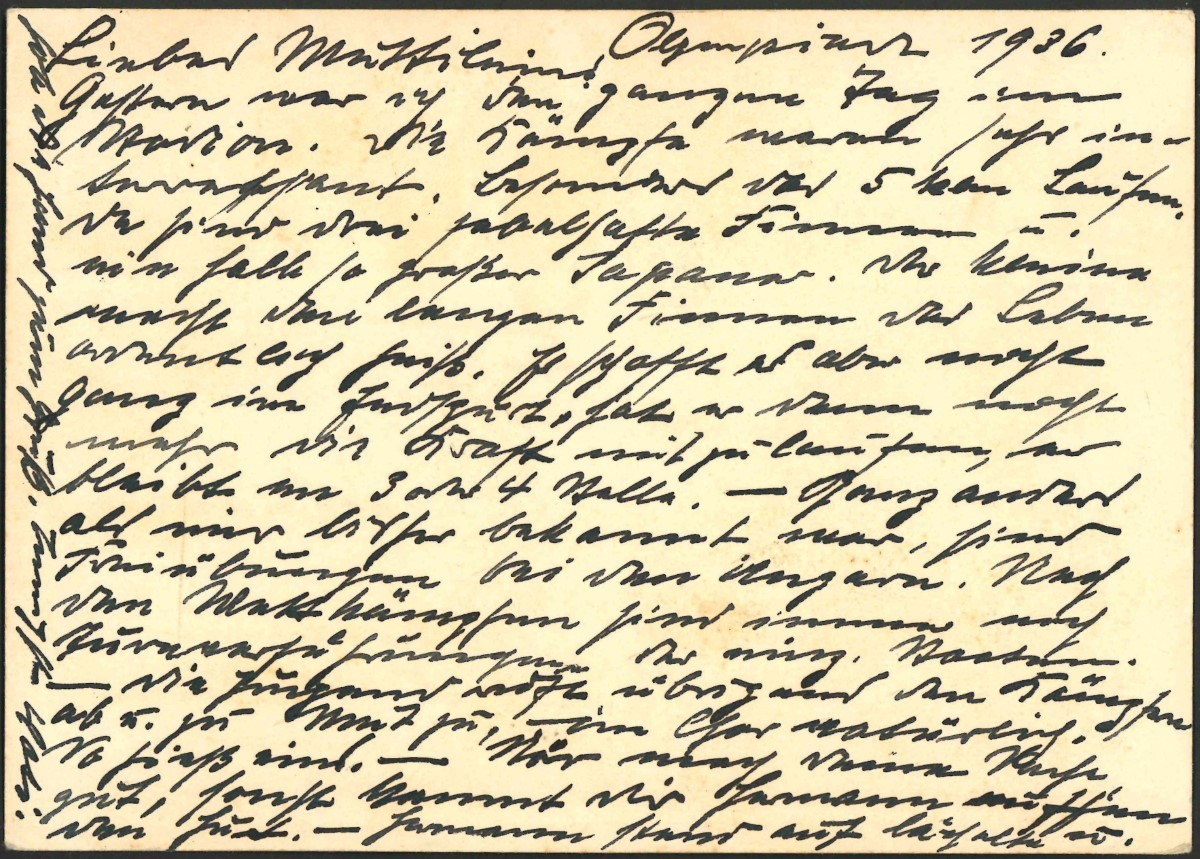 Olympiade 1936.
Liebes Muttilein!
Gestern war ich den ganzen Tag im
Stadion. Die Kämpfe waren sehr in-
teressant. Besonders das 5 km Laufen.
Da sind drei fabelhafte Finnen u.
ein halb so großer Japaner. Der kleine
macht den langen Finnen das Leben
ordentlich heiß. Er schafft es aber nicht
ganz im Endspurt, hat er dann nicht
mehr die Kraft mitzulaufen, er
bleibt an 3 oder 4 Stelle. — Ganz anders
als mir bisher bekannt war, sind
Freiübungen bei den Ungarn. Nach
den Wettkämpfen sind immer noch
Turnvorführungen der einz. Staaten.
— Die Jugend ruft übrigens den Kämpfern
ab u. zu Mut zu, — im Chor natürlich.
So hieß eins. — Nör mach deine Sache
gut, sonst kommt dir Hermann auf
den Hut. — Hermann stand auf lächelte u.